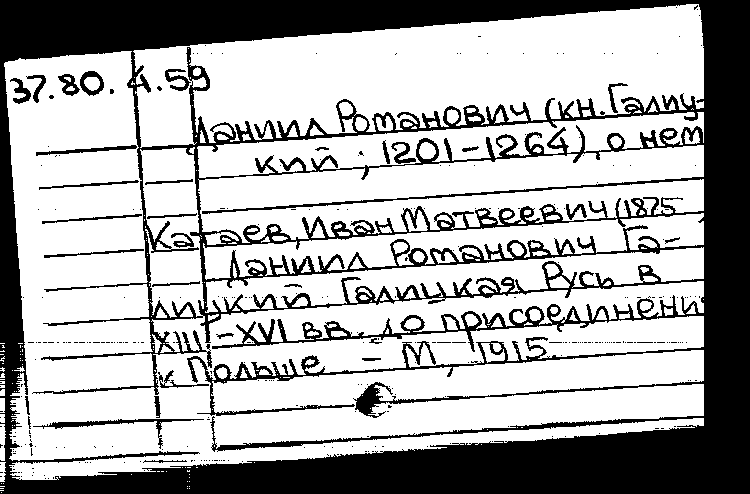 37.80. 4.59
Даниил Романович (кн. Галиц-
кий ; 1201-1264), о нем
Катаев, Иван Матвеевич (1875
Даниил Романович Га-
лицкий. Галицкая Русь в
XIII-XVI вв. до присоединени
к Польше - М, 1915.